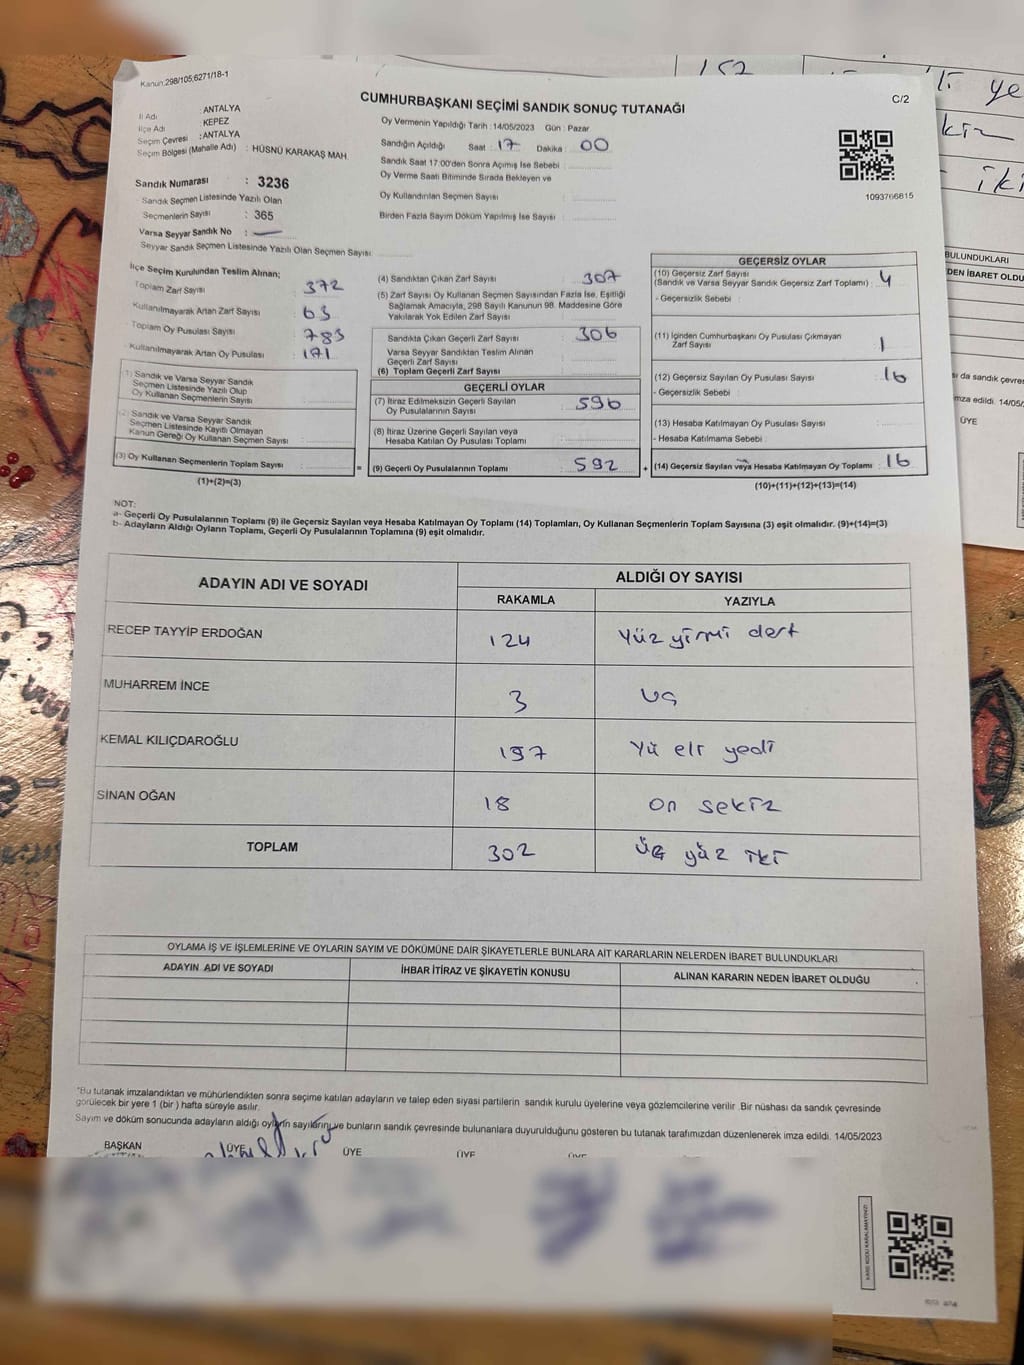 Kanun 298/105;6271/18-1
CUMHURBAŞKANI SEÇİMİ SANDIK SONUÇ TUTANAĞI
C/2
İl Adı : ANTALYA
İlçe Adı : KEPEZ
Seçim Çevresi : ANTALYA
Seçim Bölgesi (Mahalle Adı) : HÜSNÜ KARAKAŞ MAH.
Sandık Numarası : 3236
Sandık Seçmen Listesinde Yazılı Olan
Seçmenlerin Sayısı : 365
Varsa Seyyar Sandık No : —
Seyyar Sandık Seçmen Listesinde Yazılı Olan Seçmen Sayısı:
Oy Vermenin Yapıldığı Tarih : 14/05/2023 Gün : Pazar
Sandığın Açıldığı Saat : 17 Dakika : 00
Sandık Saat 17:00'den Sonra Açımış İse Sebebi :
Oy Verme Saati Bitiminde Sırada Bekleyen ve
Oy Kullandırılan Seçmen Sayısı :
Birden Fazla Sayım Döküm Yapılmış İse Sayısı :
1093766815
İlçe Seçim Kurulundan Teslim Alınan;
Toplam Zarf Sayısı : 372
Kullanılmayarak Artan Zarf Sayısı : 63
Toplam Oy Pusulası Sayısı : 783
Kullanılmayarak Artan Oy Pusulası : 171
(1) Sandık ve Varsa Seyyar Sandık
Seçmen Listesinde Yazılı Olup
Oy Kullanan Seçmenlerin Sayısı :
(2) Sandık ve Varsa Seyyar Sandık
Seçmen Listesinde Kayıtlı Olmayan
Kanun Gereği Oy Kullanan Seçmen Sayısı :
(3) Oy Kullanan Seçmenlerin Toplam Sayısı :
(1)+(2)=(3)
(4) Sandıktan Çıkan Zarf Sayısı : 307
(5) Zarf Sayısı Oy Kullanan Seçmen Sayısından Fazla İse, Eşitliği
Sağlamak Amacıyla, 298 Sayılı Kanunun 98. Maddesine Göre
Yakılarak Yok Edilen Zarf Sayısı :
Sandıkta Çıkan Geçerli Zarf Sayısı : 306
Varsa Seyyar Sandıktan Teslim Alınan
Geçerli Zarf Sayısı :
(6) Toplam Geçerli Zarf Sayısı :
GEÇERLİ OYLAR
(7) İtiraz Edilmeksizin Geçerli Sayılan
Oy Pusulalarının Sayısı : 596
(8) İtiraz Üzerine Geçerli Sayılan veya
Hesaba Katılan Oy Pusulası Toplamı :
= (9) Geçerli Oy Pusulalarının Toplamı : 592 +
GEÇERSİZ OYLAR
(10) Geçersiz Zarf Sayısı
(Sandık ve Varsa Seyyar Sandık Geçersiz Zarf Toplamı) : 4
- Geçersizlik Sebebi :
(11) İçinden Cumhurbaşkanı Oy Pusulası Çıkmayan
Zarf Sayısı : 1
(12) Geçersiz Sayılan Oy Pusulası Sayısı : 16
- Geçersizlik Sebebi :
(13) Hesaba Katılmayan Oy Pusulası Sayısı :
- Hesaba Katılmama Sebebi :
(14) Geçersiz Sayılan veya Hesaba Katılmayan Oy Toplamı : 16
(10)+(11)+(12)+(13)=(14)
NOT:
a- Geçerli Oy Pusulalarının Toplamı (9) ile Geçersiz Sayılan veya Hesaba Katılmayan Oy Toplamı (14) Toplamları, Oy Kullanan Seçmenlerin Toplam Sayısına (3) eşit olmalıdır. (9)+(14)=(3)
b- Adayların Aldığı Oyların Toplamı, Geçerli Oy Pusulalarının Toplamına (9) eşit olmalıdır.
ADAYIN ADI VE SOYADI
ALDIĞI OY SAYISI
RAKAMLA YAZIYLA
RECEP TAYYİP ERDOĞAN 124 Yüz yirmi dört
MUHARREM İNCE 3 üç
KEMAL KILIÇDAROĞLU 157 Yü elli yedi
SİNAN OĞAN 18 on sekiz
TOPLAM 302 Üç yüz iki
OYLAMA İŞ VE İŞLEMLERİNE VE OYLARIN SAYIM VE DÖKÜMÜNE DAİR ŞİKAYETLERLE BUNLARA AİT KARARLARIN NELERDEN İBARET BULUNDUKLARI
ADAYIN ADI VE SOYADI İHBAR İTİRAZ VE ŞİKAYETİN KONUSU ALINAN KARARIN NEDEN İBARET OLDUĞU
*Bu tutanak imzalandıktan ve mühürlendikten sonra seçime katılan adayların ve talep eden siyasi partilerin sandık kurulu üyelerine veya gözlemcilerine verilir. Bir nüshası da sandık çevresinde
görülecek bir yere 1 (bir) hafta süreyle asılır.
Sayım ve döküm sonucunda adayların aldığı oyların sayılarını ve bunların sandık çevresinde bulunanlara duyurulduğunu gösteren bu tutanak tarafımızdan düzenlenerek imza edildi. 14/05/2023
BAŞKAN ÜYE ÜYE ÜYE ÜYE
152
BULUNDUKLARI
DEN İBARET OLDU
da sandık çevres
mza edildi. 14/05/
ÜYE